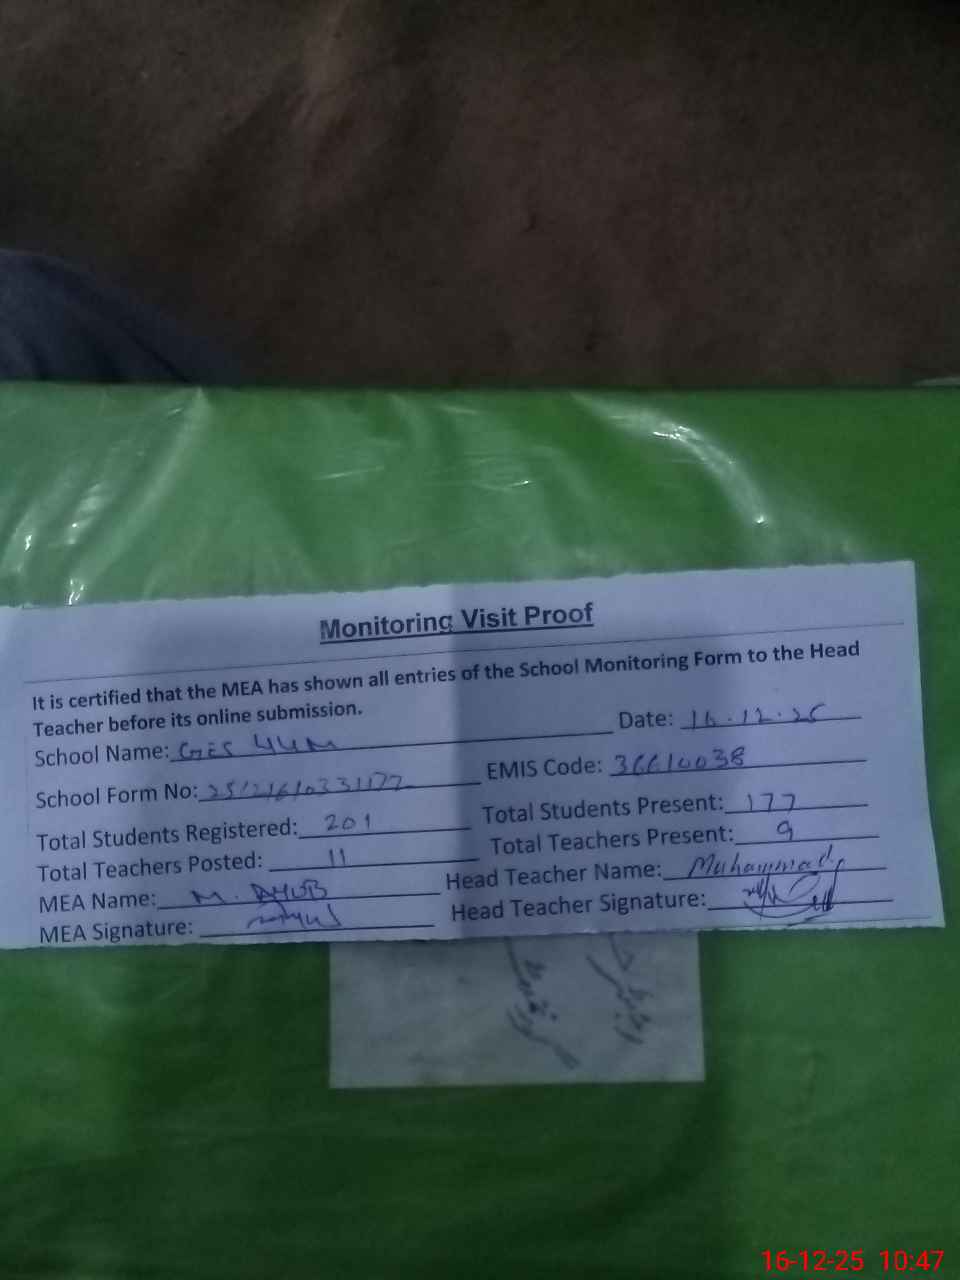 Monitoring Visit Proof
It is certified that the MEA has shown all entries of the School Monitoring Form to the Head
Teacher before its online submission.
School Name: GES 44M Date: 16.12.25
School Form No: EMIS Code: 36610038
Total Students Registered: 201 Total Students Present: 177
Total Teachers Posted: 11 Total Teachers Present: 9
MEA Name: M. AYUB Head Teacher Name: Muhammad
MEA Signature: Head Teacher Signature:
16-12-25 10:47